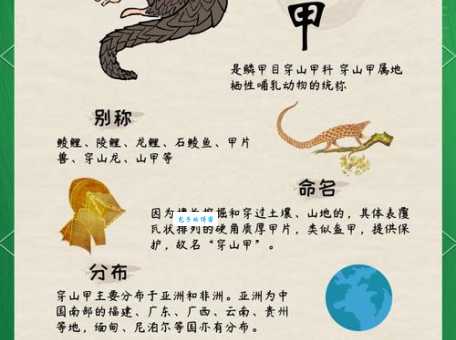 甲
是鳞甲目穿山甲科 穿山甲属地
栖性哺乳动物的统称
别称
鲮鲤、陵鲤、龙鲤、石鲮鱼、甲片
兽、穿山龙、山甲等
命名
因为擅长挖掘和穿过土壤、山地的，具体表覆
瓦状排列的硬角质厚甲片，类似盔甲，提供保
护，故名“穿山甲”。
分布
穿山甲主要分布于亚洲和非洲。亚洲为中
国南部的福建、广东、广西、云南、贵州
等地，缅甸、尼泊尔等国亦有分布。